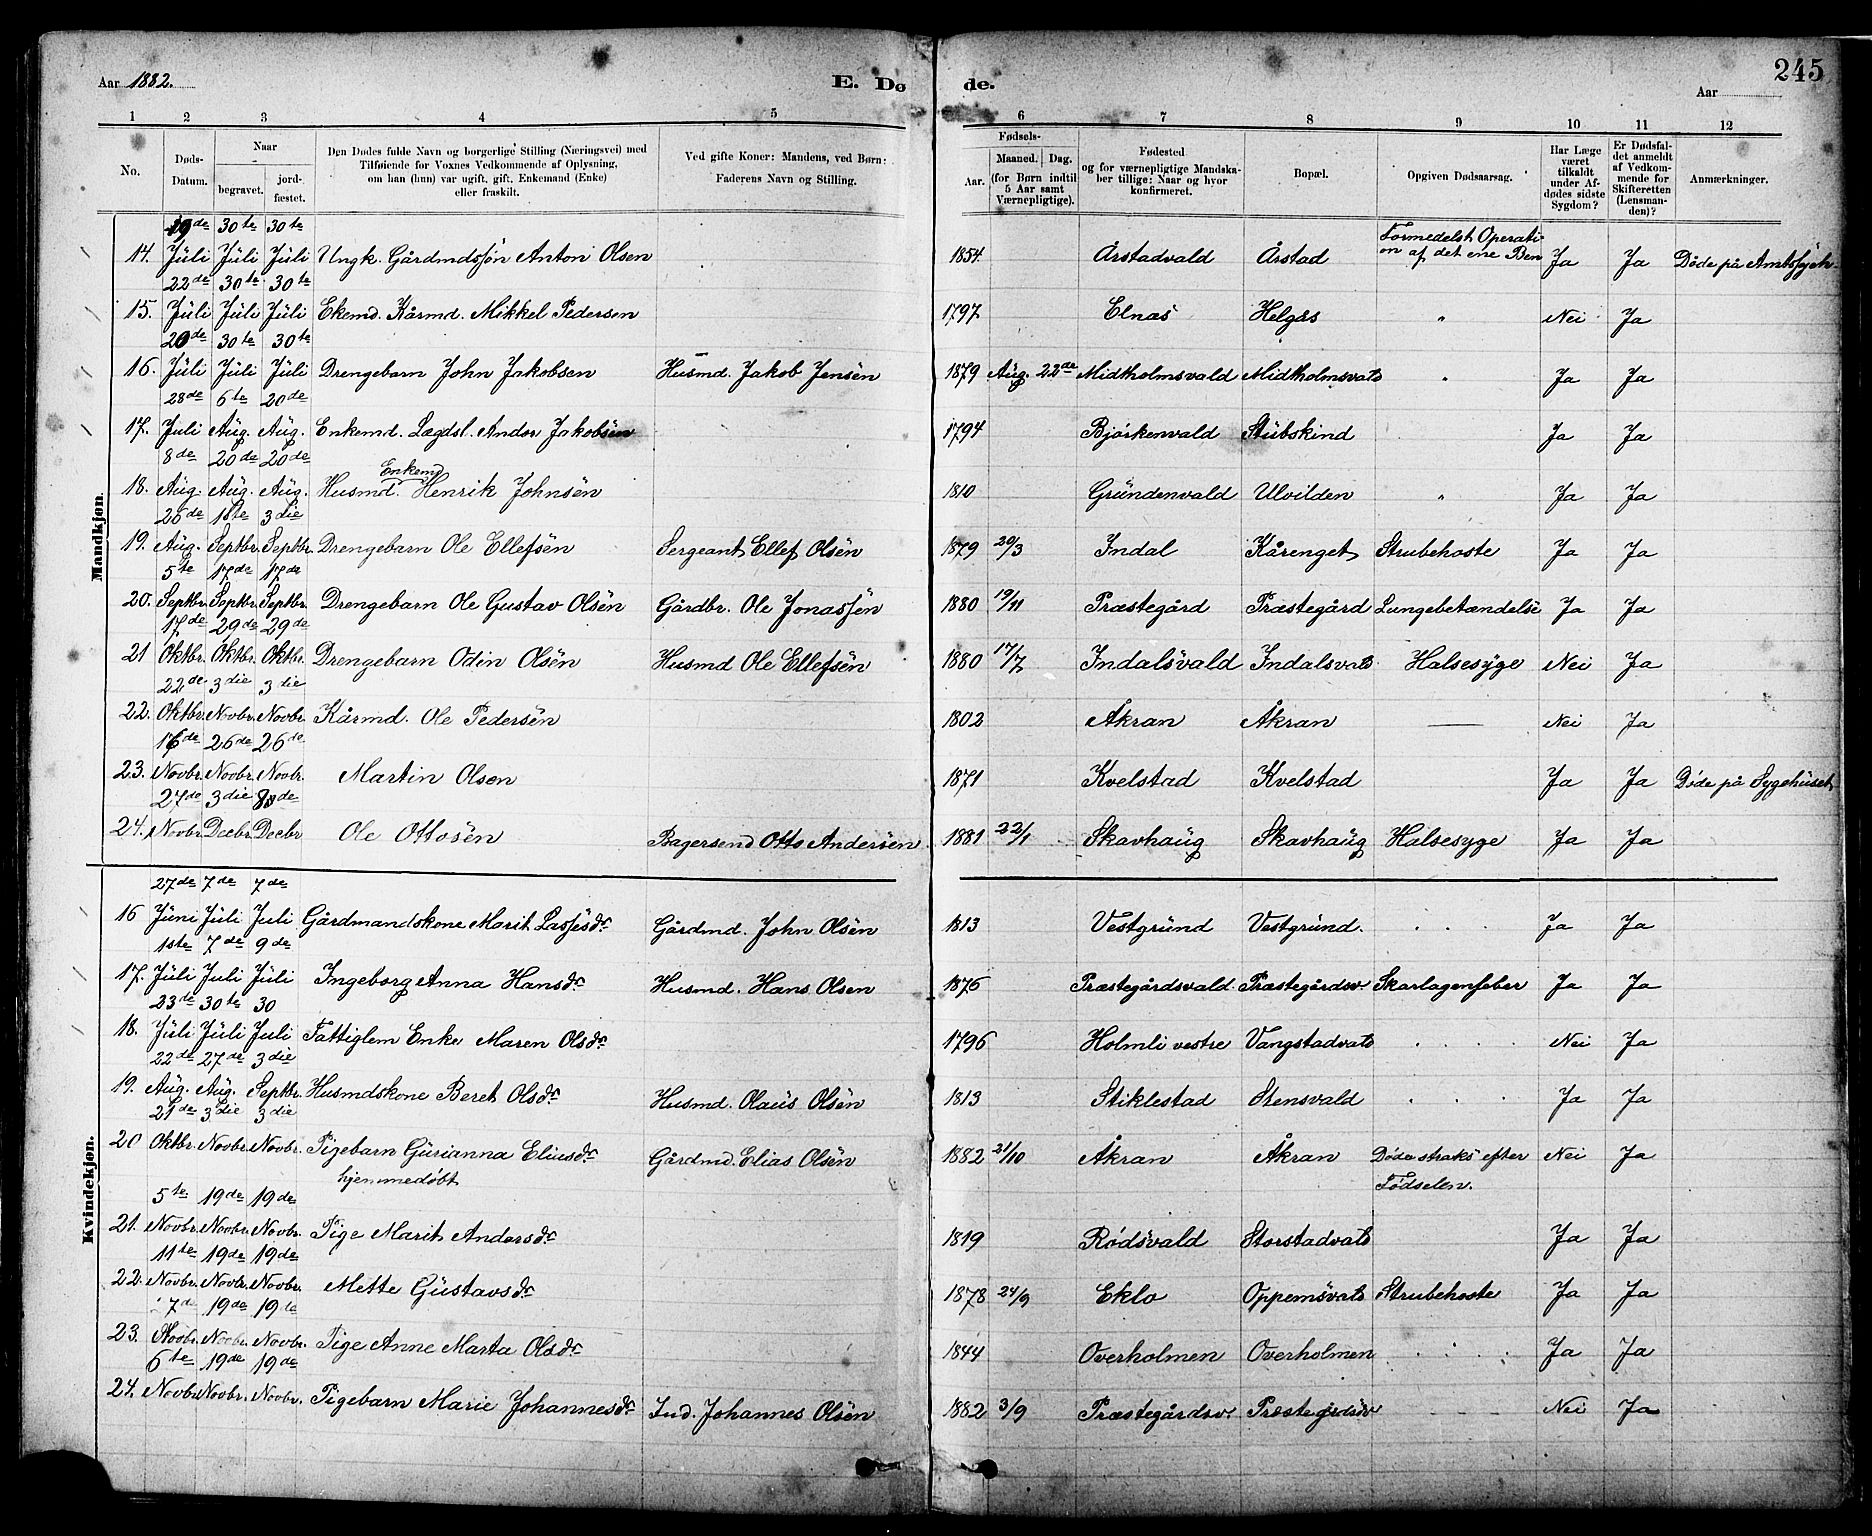 Aar 1882. E. Dø de. Aar 245
1 2 3 4 5 6 7 8 9 10 11 12
No. Døds-Datum. Naar begravet. jordfæstet. Den Dødes fulde Navn og borgerlige Stilling (Næringsvei) med Tilføiende for Voxnes Vedkommende af Oplysning, om han (hun) var ugift, gift, Enkemand (Enke) eller fraskilt. Ved gifte Koner: Mandens, ved Børn: Faderens Navn og Stilling. Fødsels- Aar. Maaned. Dag. (for Børn indtil 5 Aar samt Værnepligtige). Fødested og for værnepligtige Mandskaber tillige: Naar og hvor konfirmeret. Bopæl. Opgiven Dødsaarsag. Har Læge været tilkaldt under Afdødes sidste Sygdom? Er Dødsfaldet anmeldt af Vedkommende for Skifteretten (Lensmanden)? Anmærkninger.
Mandkjøn.
19de 30te 30te
14. Juli Juli Juli Ungk. Gårdmdssøn Anton Olsen 1854 Årstadvald Årstad Formedelst Operation af det ene Ben Ja Ja Døde på Amtssyeh.
22de 30te 30te
15. Juli Juli Juli Ekemd. Kårmd. Mikkel Pedersen 1797 Elnæs Helgås " Nei Ja
20de 30te 30te
16. Juli Juli Juli Drengebarn John Jakobsen Husmd. Jakob Jensen 1879 Aug. 22de Midtholmsvald Midtholmsvald " Ja Ja
28de 6te 20de
17. Juli Aug. Aug. Enkemd. Lægdsl. Andor Jakobsen 1794 Bjørkenvald Stubskind Ja Ja
8de 20de 20de
18. Aug. Aug. Aug. Husmd. Enkemd Henrik Johnsen 1810 Grundenvald Ulvilden " Ja Ja
26de 1ste 3die
19. Aug. Septbr. Septbr. Drengebarn Ole Ellefsen Sergeant Ellef Olsen 1879 20/3 Indal Kårenget Strubehoste Ja Ja
5te 17de 17de
20. Septbr. Septbr. Septbr. Drengebarn Ole Gustav Olsen Gårdbr. Ole Jonassen 1880 19/11 Præstegård Præstegård Lungebetændelse Ja Ja
17de 29de 29de
21 Oktbr. Oktbr. Oktbr. Drengebarn Odin Olsen Husmd Ole Ellefsen 1880 17/7 Indalsvald Indalsvald Halsesyge Nei Ja
22de 3die 3die
22. Oktbr. Novbr. Novbr. Kårmd. Ole Pedersen 1802 Åkran Åkran — Nei Ja
16de 26de 26de
23. Novbr. Novbr. Novbr. Martin Olsen 1871 Kvelstad Kvelstad Ja Ja Døde på Sygehuset
27de 3die 3de
24. Novbr. Decbr. Decbr Ole Ottosen Bagersvend Otto Andersen 1881 22/1 Skavhaug Skavhaug Halsesyge Ja Ja
Kvindekjøn.
27de 7de 7de
16 Juni Juli Juli Gårdmandskone Marit Lassesdr Gårdmd. John Olsen 1813 Vestgrund Vestgrund. Ja Ja
1ste 7de 9de
17. Juli Juli Juli Ingeborg Anna Hansdr Husmd. Hans Olsen 1876 Præstegårdsvald. Præstegårdsv. Skarlagensfeber Ja Ja
23de 30te 30
18. Juli Juli Juli Fattiglem Enke Maren Olsdr 1796 Holmli vestre Vangstadvald Nei Ja
22de 27de 3die
19. Aug. Aug. Septbr. Husmdskone Beret Olsdr Husmd. Olaus Olsen 1813 Stiklestad Stensvald Ja Ja
21de 3die 3die
20 Oktbr. Novbr. Novbr. Pigebarn Gurianna Eliasdr Gårdmd. Elias Olsen 1882 21/10 Åkran Åkran Døde straks efter Nei Ja
hjemmedøbt Fødselen.
5te 19de 19de
21. Novbr. Novbr. Novbr. Pige Marit Andersdr 1819 Rødsvald Storstadvald Ja Ja
11te 19de 19de
22. Novbr. Novbr. Novbr. Mette Gustavsdr 1878 24/9 Eklo Oppemsvald Strubehoste Ja Ja
7de 19de 19de
23. Novbr. Novbr. Novbr. Pige Anne Marta Olsdr 1844 Overholmen Overholmen Ja Ja
6te 19de 19de
24. Novbr Novbr. Novbr. Pigebarn Marie Johannesdr Ind. Johannes Olsen 1882 3/9 Præstegårdsv. Præstegårdsv Nei Ja